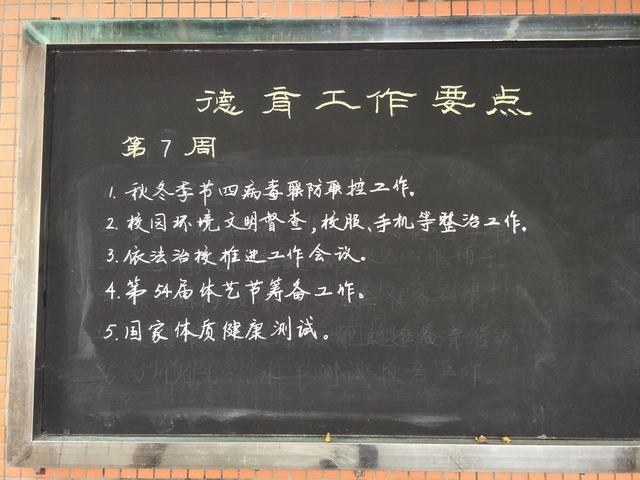 德育工作要点
第7周
1. 秋冬季节四病毒联防联控工作。
2. 校园环境文明督查,校服、手机等整治工作。
3. 依法治校推进工作会议。
4. 第54届体艺节筹备工作。
5. 国家体质健康测试。